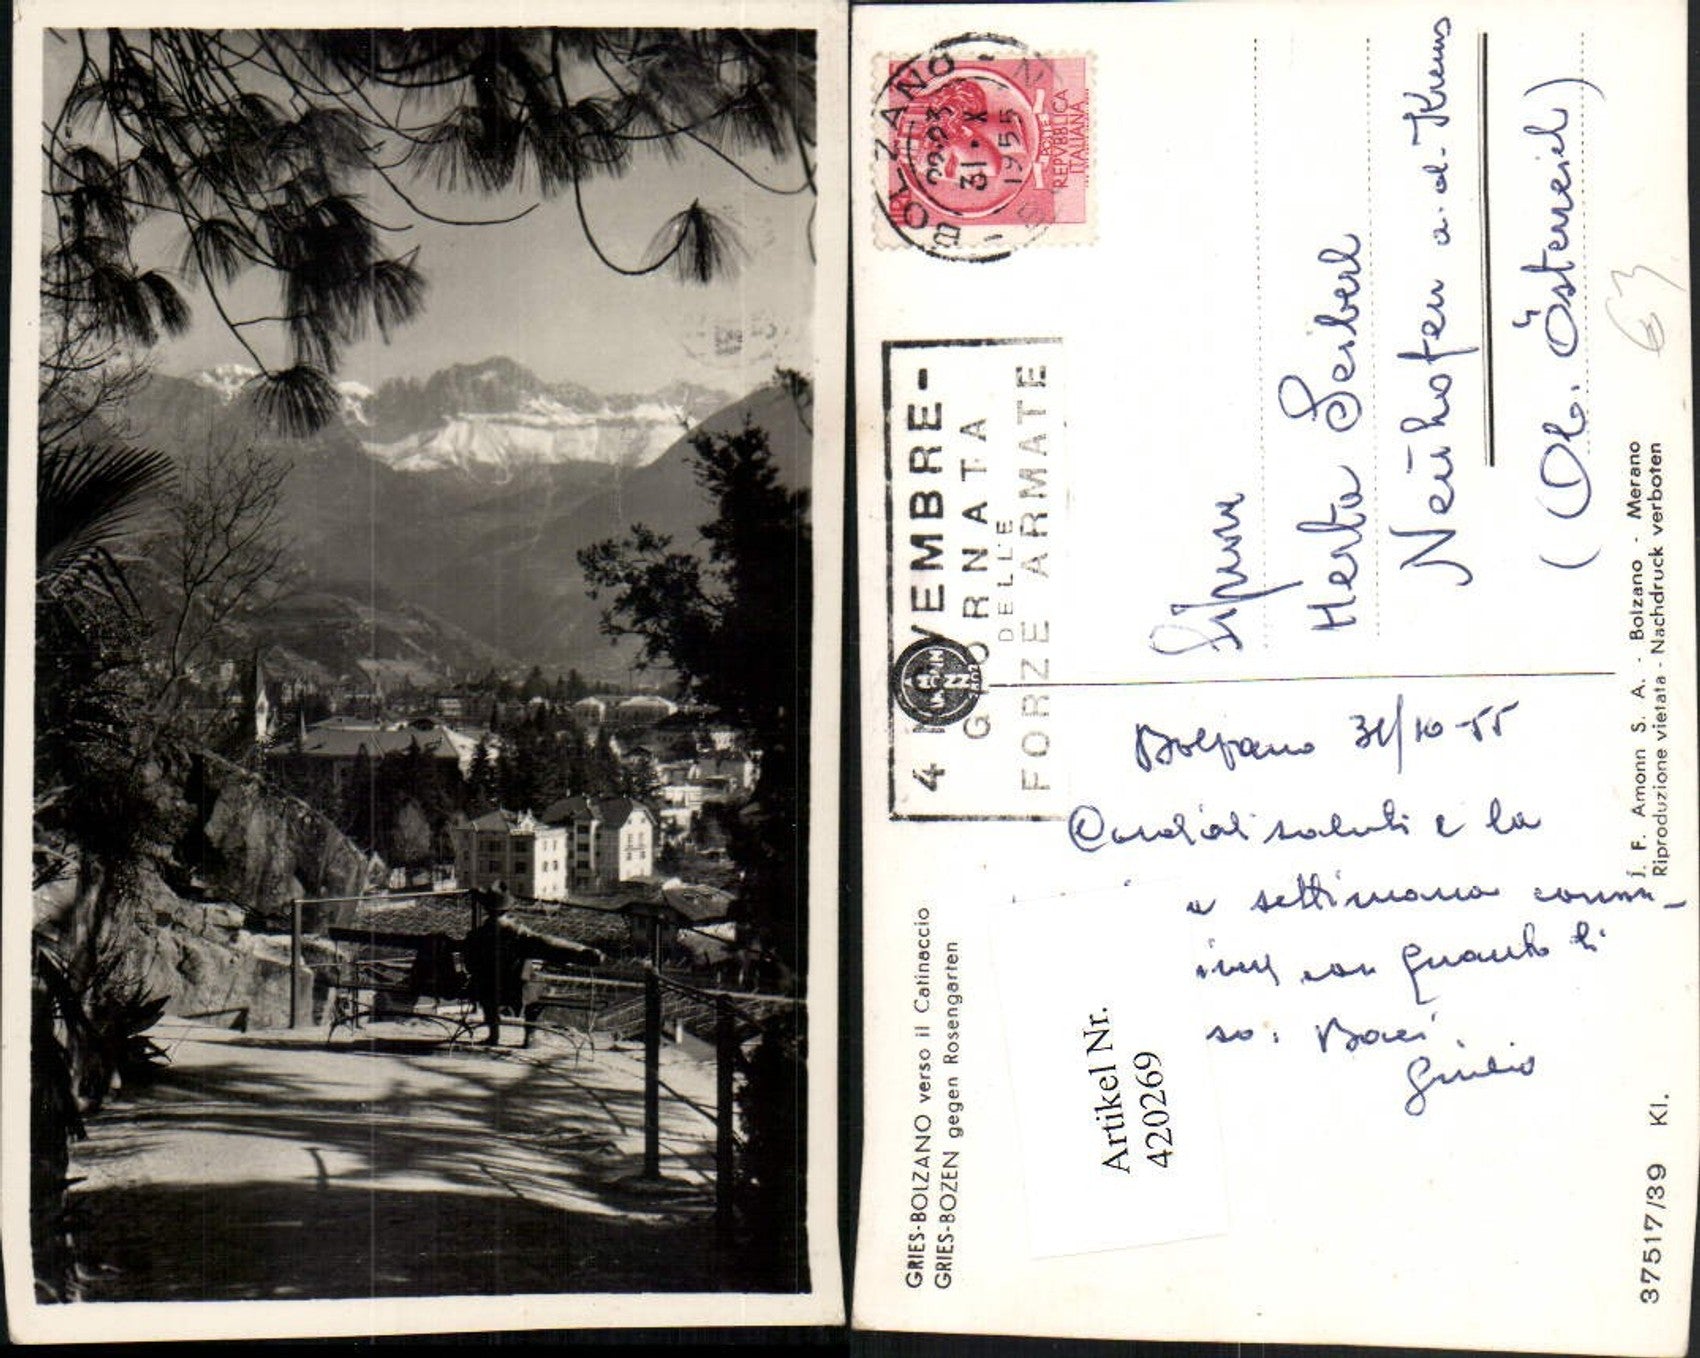 BOLZANO
31·X
1955
POSTE
REPVBBLICA
ITALIANA
4 N VEMBRE-
GIORNATA
DELLE
FORZE ARMATE
GRIES-BOLZANO verso il Catinaccio
GRIES-BOZEN gegen Rosengarten
Bolzano 31/10-55
Cordiali saluti e la
settimana
con quanto ti
so: Baci
Giulio
Artikel Nr.
420269
Herta Seiberl
Neuhofen a.d-Krems
(Ob. Österreich)
63
J. F. Amonn S. A. - Bolzano - Merano
Riproduzione vietata - Nachdruck verboten
37517/39 Kl.